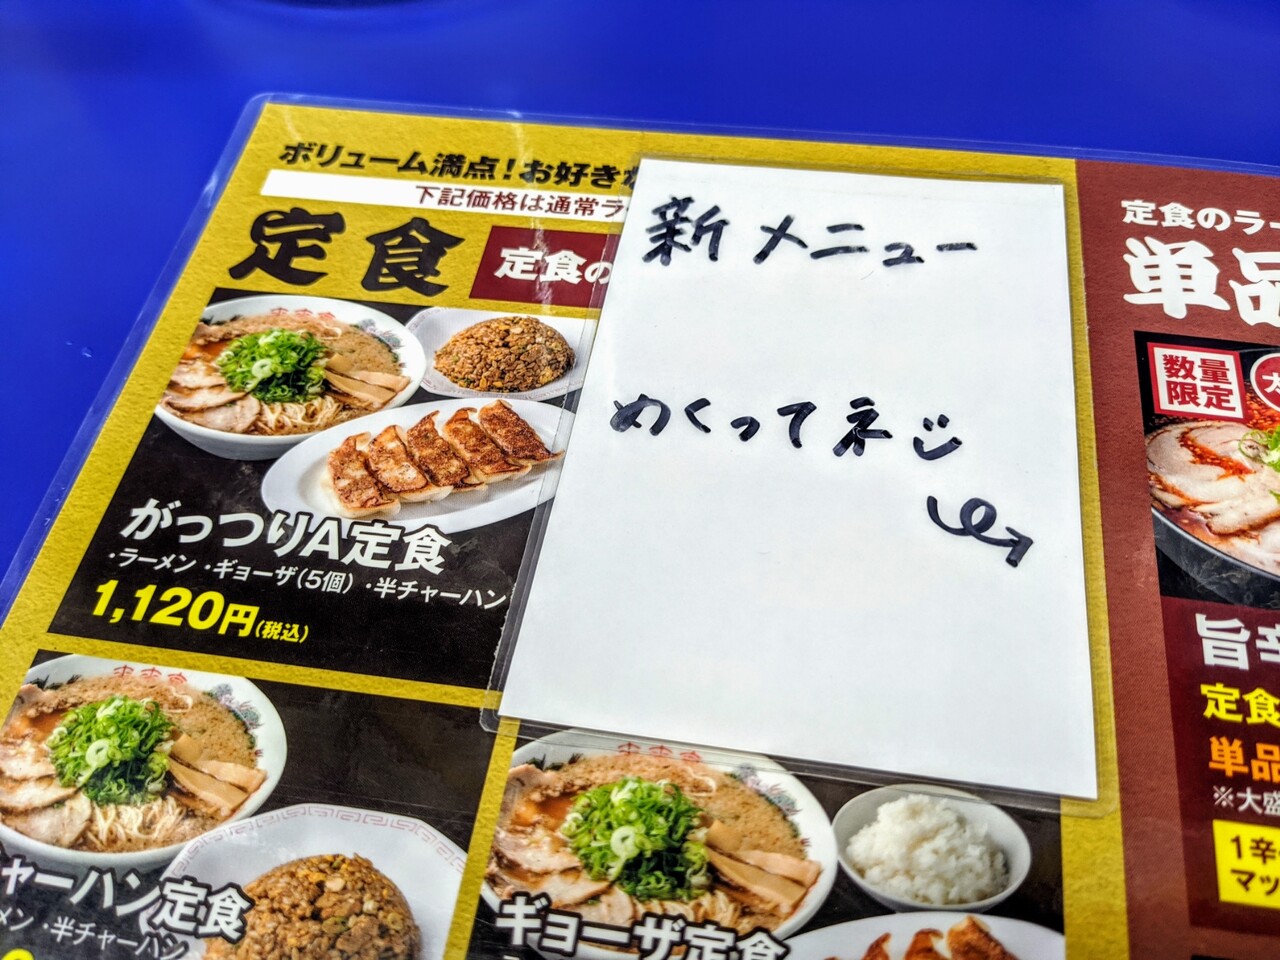 ボリューム満点!お好きな
下記価格は通常ラ
定食
定食の
がっつりA定食
・ラーメン ・ギョーザ(5個) ・半チャーハン
1,120円(税込)
ャーハン定食
メン ・半チャーハン
ギョーザ定食
新メニュー
めくってネ
定食のラー
単品
数量
限定
旨辛
定食
単品
※大盛
1辛
マッ